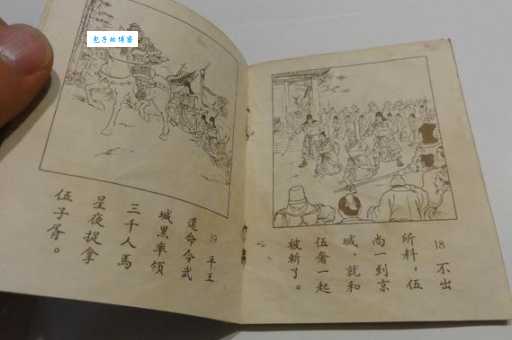 18 不出
所料，伍
尚一到京
城，就和
伍奢一起
被斬了。
19 平王
命令武
城黑率領
三千人馬
星夜捉拿
伍子胥。